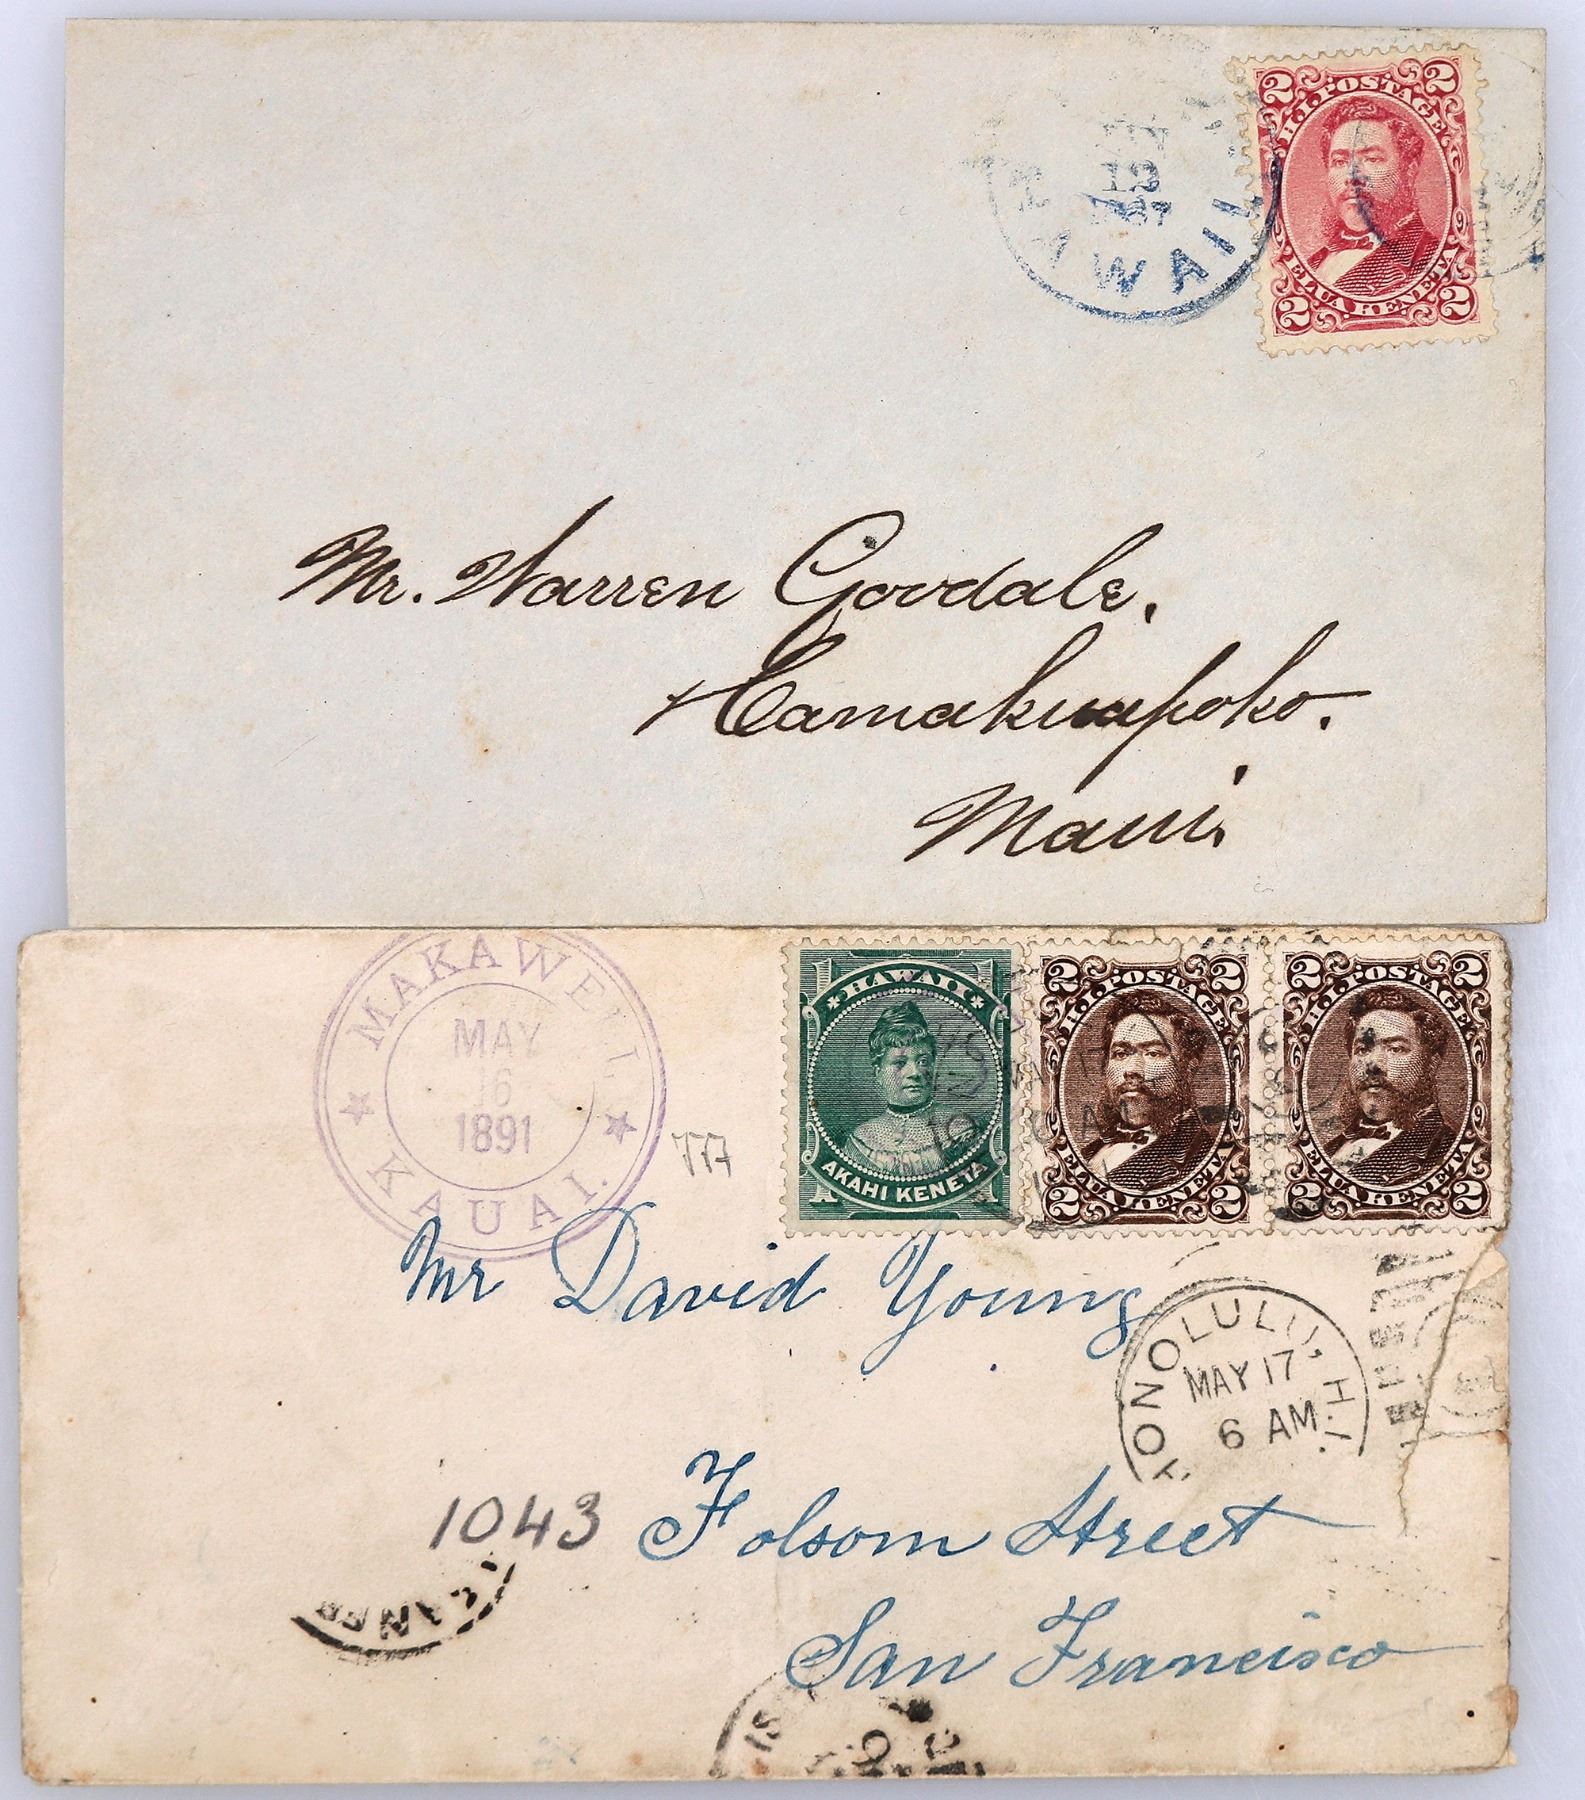 2 2
H.I. POSTAGE
ELUA KENETA
2 2
13
87
HAWAII
Mr. Warren Goodale,
Hamakuapoko.
Maui.
MAKAWELI
MAY
16
1891
KAUAI.
HAWAII
AKAHI KENETA
2 2
H.I. POSTAGE
ELUA KENETA
2 2
2 2
H.I. POSTAGE
ELUA KENETA
2 2
777
Mr David Young
HONOLULU, H.I.
MAY 17
6 AM
1043 Folsom Street
San Francisco